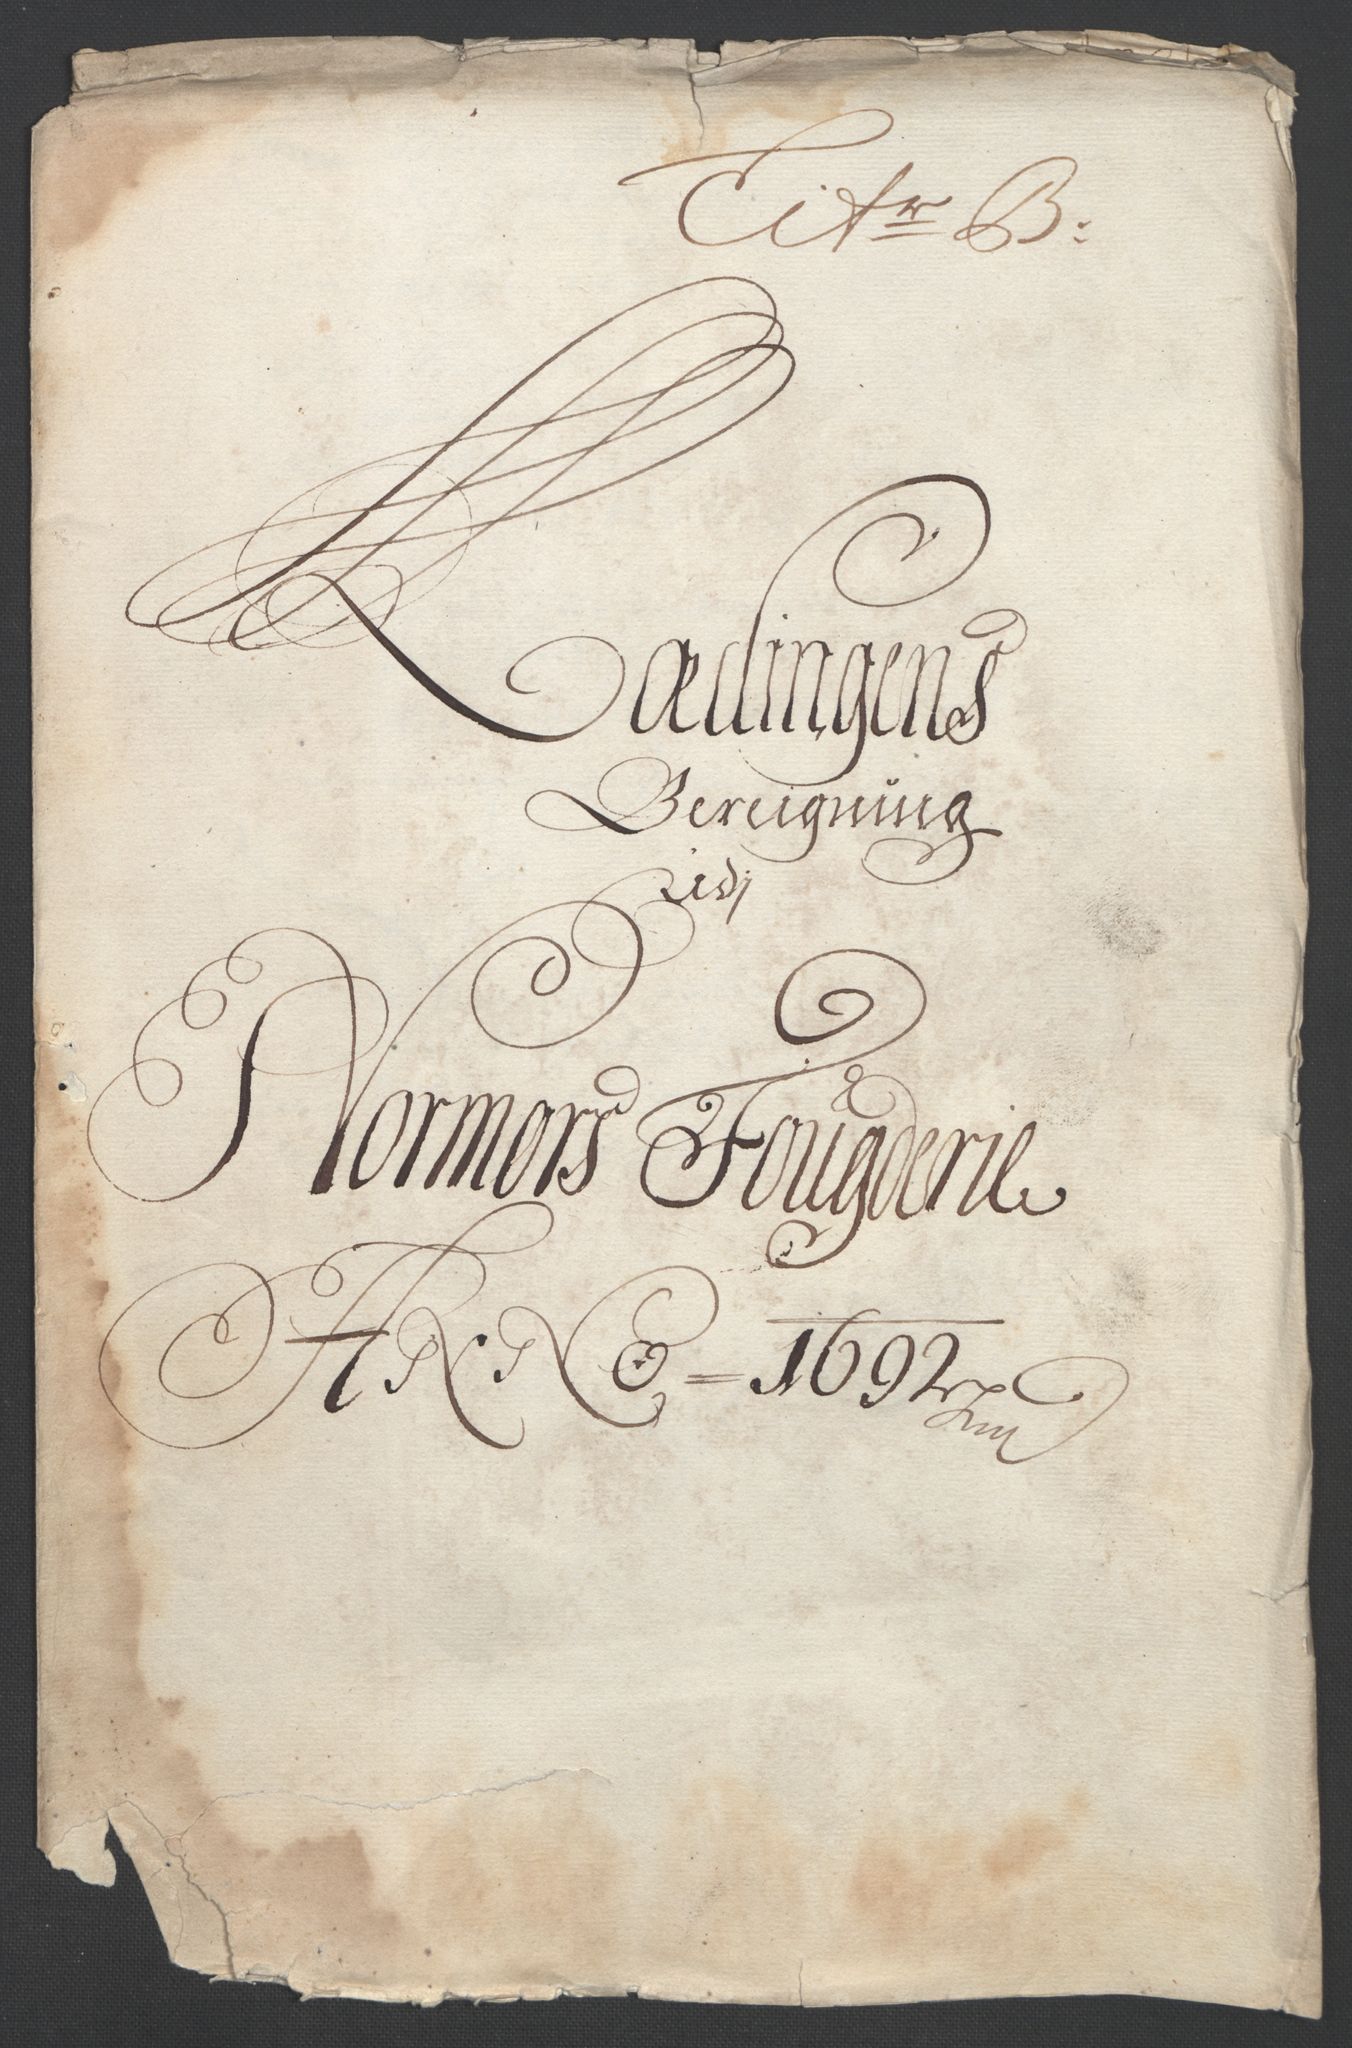 Litr B:
Lædingens
Beregning
udj
Normørs Fougderie
ANNO = 1692